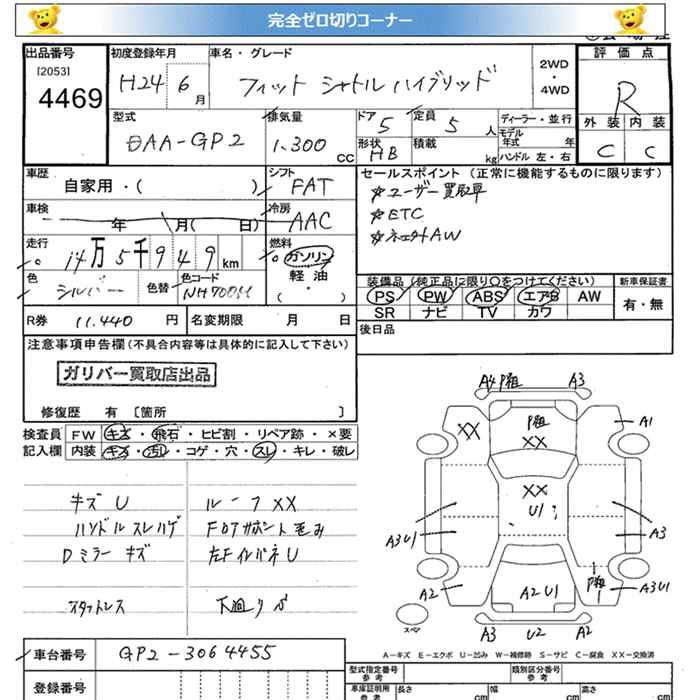 完全ゼロ切りコーナー
出品番号
[2053]
4469
初度登録年月
H24 6月
車名・グレード
フィット シャトルハイブリッド
2WD
・
4WD
評価点
R
外装 内装
C C
型式
DAA-GP2
排気量
1.300 cc
ドア
5
定員
5 人
形状
HB
積載
kg
ディーラー・並行
モデル
年式 年
ハンドル 左・右
車歴
自家用・( )
シフト
FAT
車検
年 月( 日)
冷房
AAC
走行
14万5千949km
燃料
ガソリン
軽油
( ・ )
色
シルバー
色替
色コード
NH700M
セールスポイント (正常に機能するものに限ります)
*ユーザー買取車
*ETC
装備品(純正品に限り○をつけてください)
PS PW ABS エアB AW
SR ナビ TV カワ
新車保証書
有・無
R券 11.440 円
名変期限 月 日
後日品
注意事項申告欄(不具合内容等は具体的に記入して下さい)
ガリバー買取店出品
修復歴 有 [箇所 ]
検査員
記入欄
FW キズ・飛石・ヒビ割・リペア跡・×要
内装 キズ・汚れ・コゲ・穴・スレ・キレ・破レ
キズ U
ハンドルスレハゲ
Dミラー キズ
スタットレス
ルーフ XX
左FインパネU
下廻りサビ
A4 P粗 A3
XX
P粗
XX
A1
XX
U1
A3U1
A3
A2
A2U1
P粗
A3U1
スペア
A3 U2 A2
A-キズ E-エクボ U-凹み W-補修跡 S-サビ C-腐食 XX-交換済
車台番号
GP2-3064455
登録番号
型式指定番号
参考
類別区分番号
参考
車庫証明用
参考
長さ cm
幅 cm
高さ cm